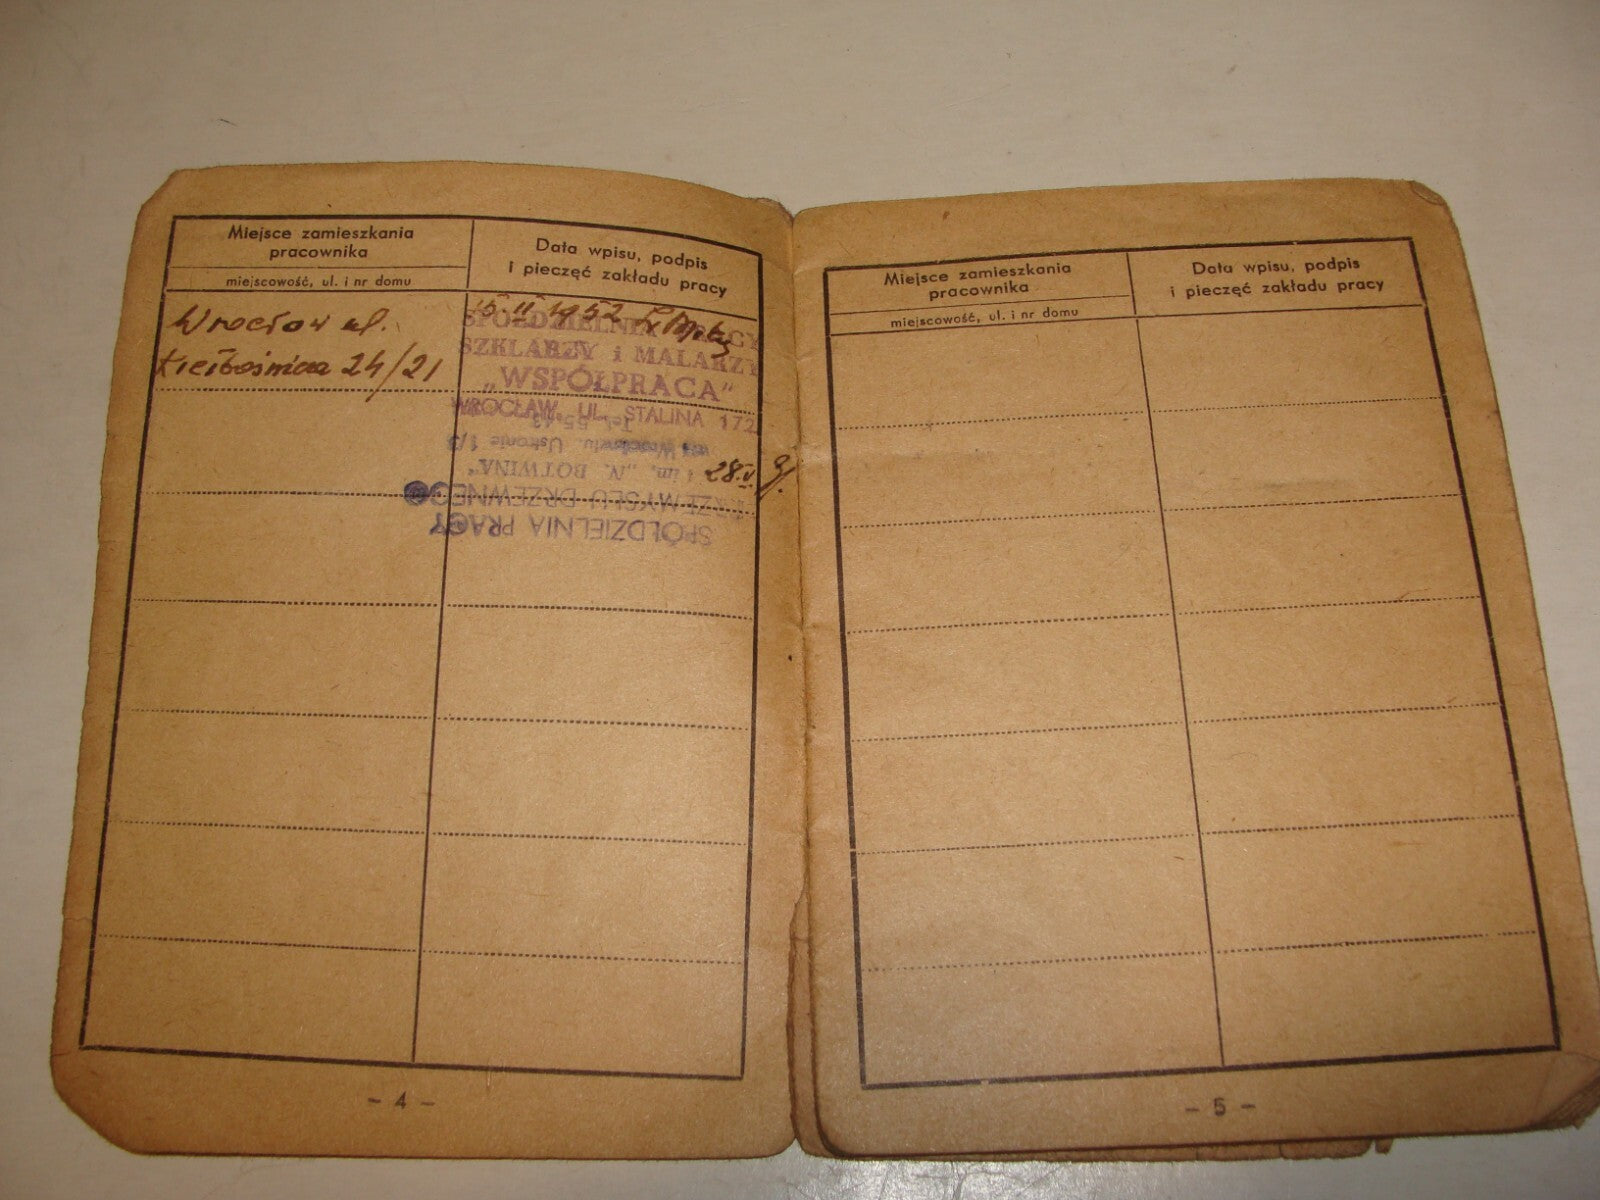 Miejsce zamieszkania
pracownika
miejscowość, ul. i nr domu
Data wpisu, podpis
i pieczęć zakładu pracy
Wrocław ul.
24/21
15 II 1952
SPÓŁDZIELNIA PRACY
SZKLARZY i MALARZY
„WSPÓŁPRACA”
WROCŁAW, UL. STALINA 172
28.V.
SPÓŁDZIELNIA PRACY
PRZEMYSŁU DRZEWNEGO
im. „N. BOTWINA”
we Wrocławiu, Ustronie 1/3
– 4 –
Miejsce zamieszkania
pracownika
miejscowość, ul. i nr domu
Data wpisu, podpis
i pieczęć zakładu pracy
– 5 –